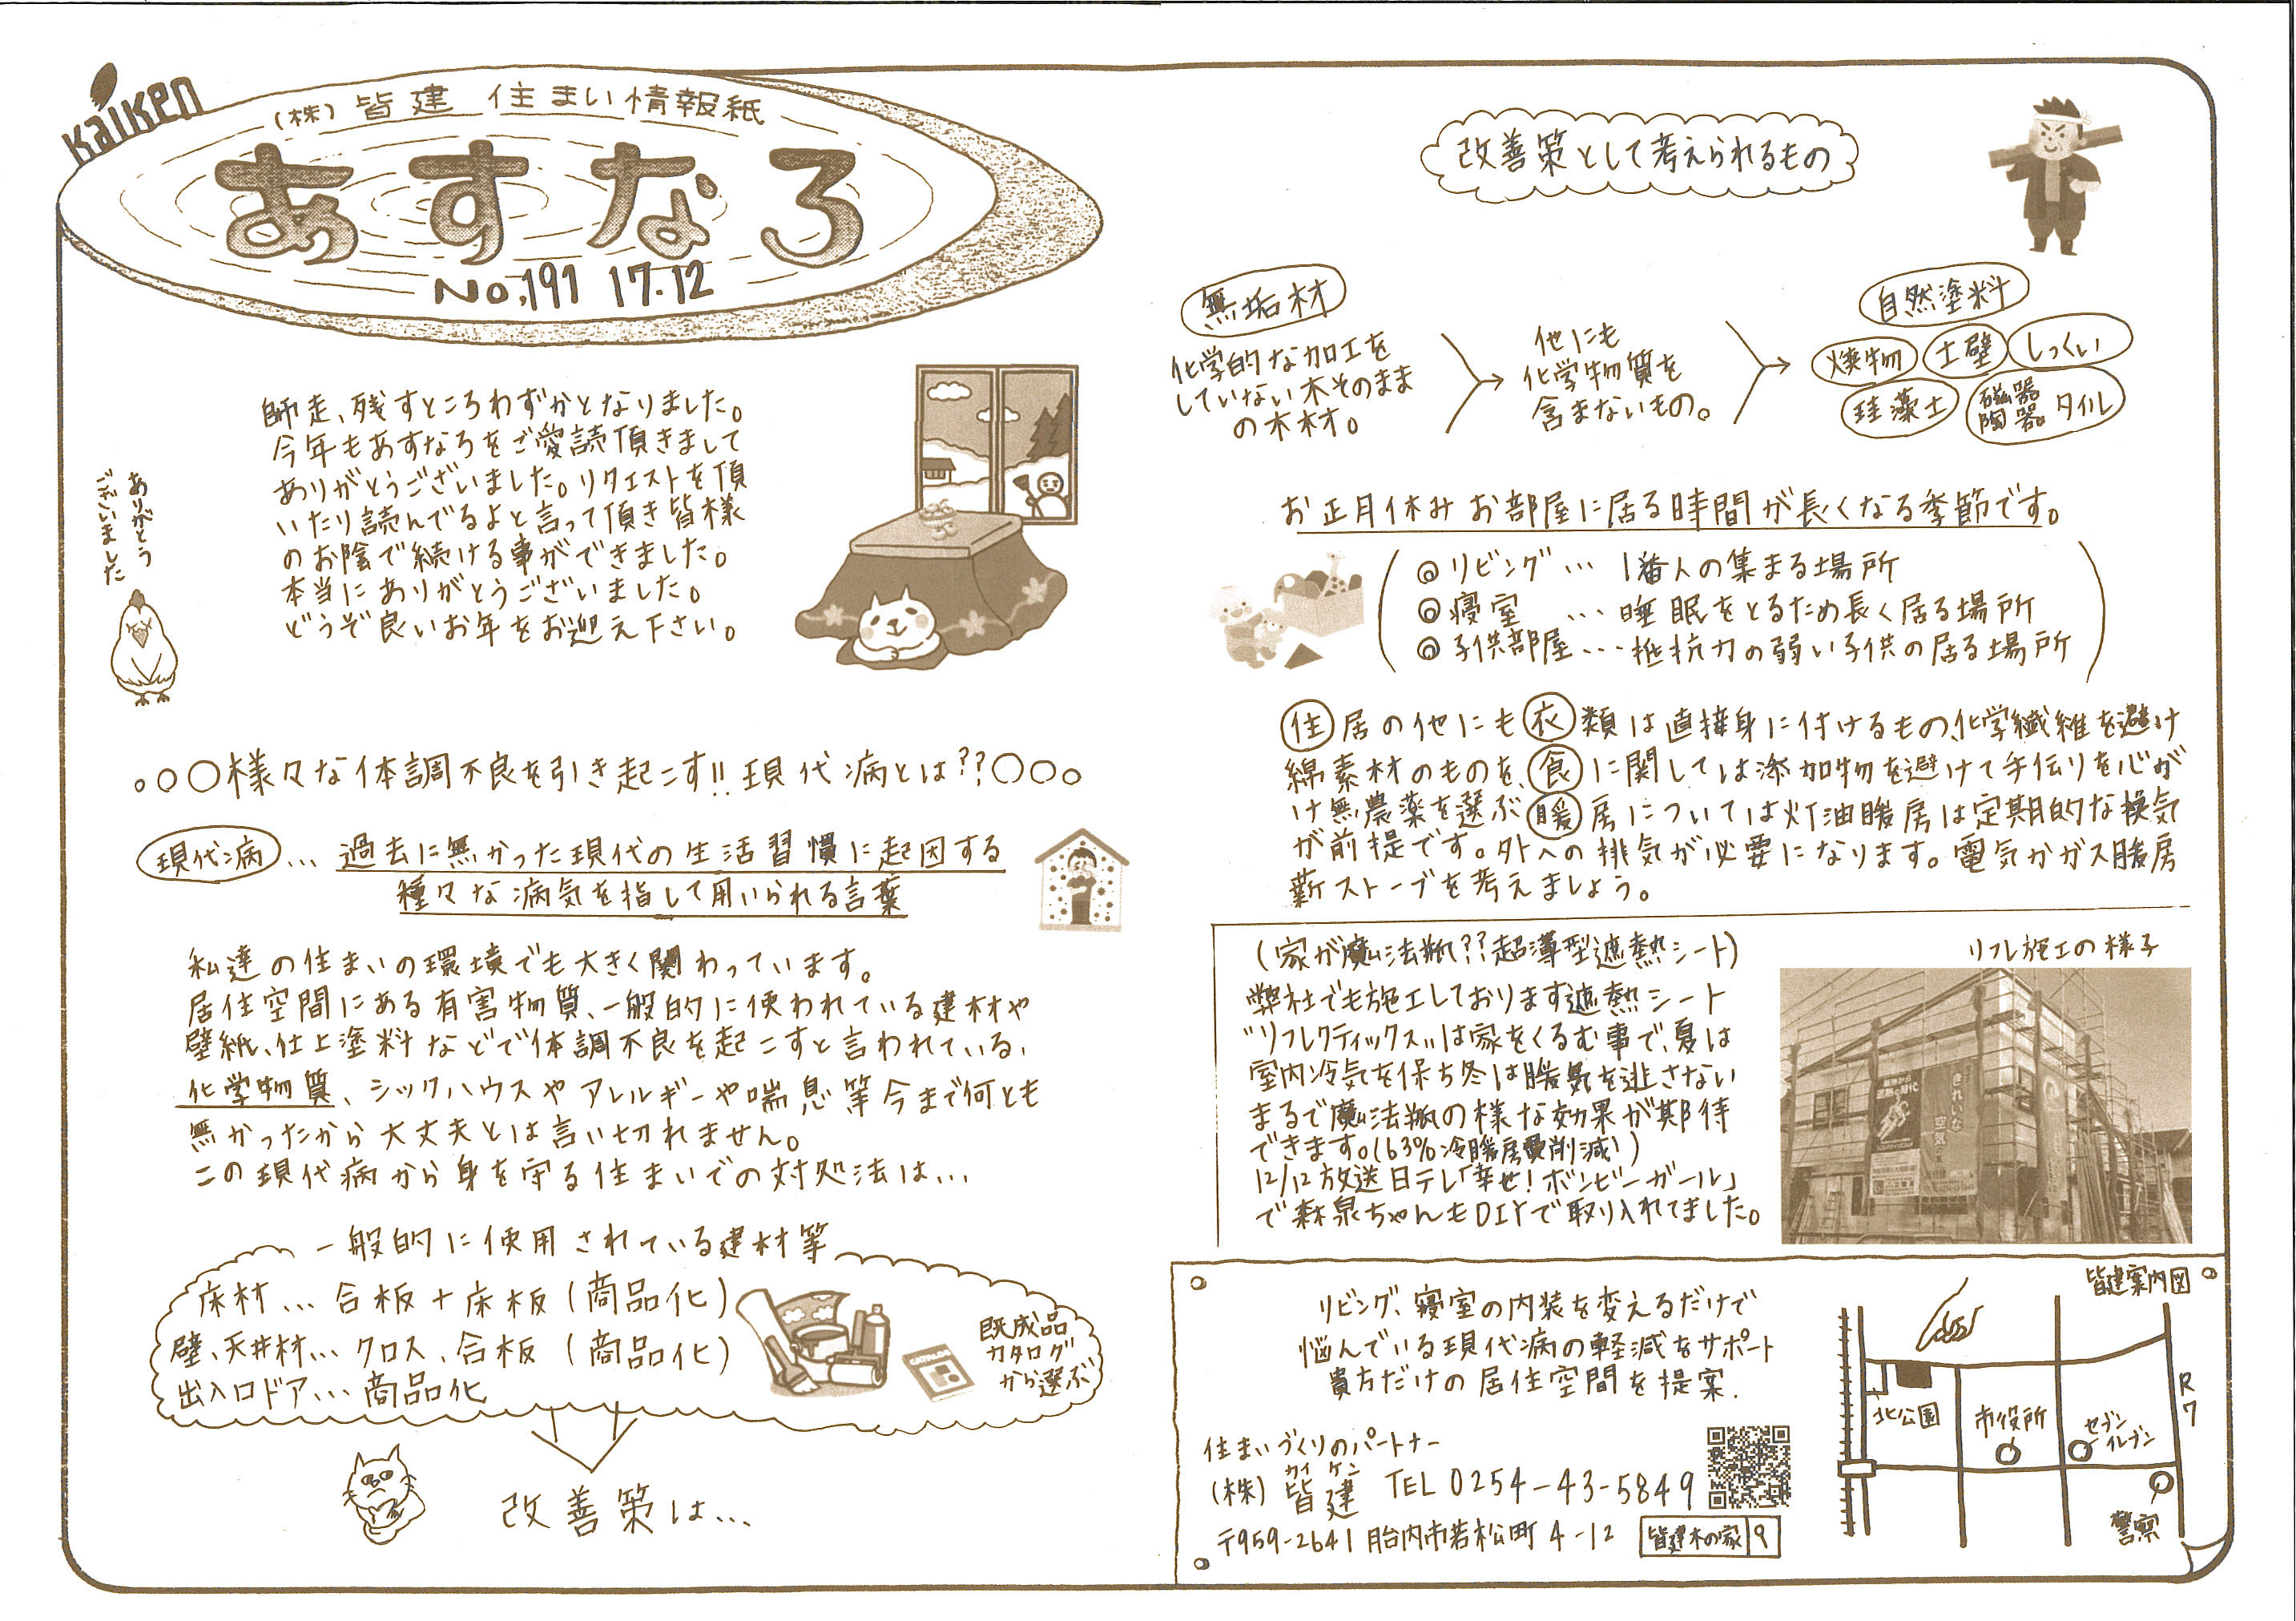 Kaiken
(株)皆建 住まい情報紙
あすなろ
No.191 17.12
師走、残すところわずかとなりました。
今年もあすなろをご愛読頂きまして
ありがとうございました。リクエストを頂
いたり読んでるよと言って頂き皆様
のお陰で続ける事ができました。
本当にありがとうございました。
どうぞ良いお年をお迎え下さい。
ありがとう
ございました
。○○様々な体調不良を引き起こす!!現代病とは??○○。
現代病…過去に無かった現代の生活習慣に起因する
種々な病気を指して用いられる言葉
私達の住まいの環境でも大きく関わっています。
居住空間にある有害物質、一般的に使われている建材や
壁紙、仕上塗料などで体調不良を起こすと言われている、
化学物質、シックハウスやアレルギーや喘息等今まで何とも
無かったから大丈夫とは言い切れません。
この現代病から身を守る住まいでの対処法は…
一般的に使用されている建材等
床材…合板+床板(商品化)
壁、天井材…クロス、合板(商品化)
出入口ドア…商品化
CATALOG
既成品
カタログ
から選ぶ
改善策は…
改善策として考えられるもの
無垢材
化学的な加工を
していない木そのまま
の木材。
他にも
化学物質を
含まないもの。
自然塗料
焼物 土壁 しっくい
珪藻土 磁器 陶器 タイル
お正月休みお部屋に居る時間が長くなる季節です。
◎リビング… 1番人の集まる場所
◎寝室 …睡眠をとるため長く居る場所
◎子供部屋…抵抗力の弱い子供の居る場所
住居の他にも衣類は直接身に付けるもの、化学繊維を避け
綿素材のものを、食に関しては添加物を避けて手伝りを心が
け無農薬を選ぶ暖房については灯油暖房は定期的な換気
が前提です。外への排気が必要になります。電気かガス暖房
薪ストーブを考えましょう。
(家が魔法瓶??超薄型遮熱シート)
弊社でも施工しております遮熱シート
"リフレクティックス"は家をくるむ事で、夏は
室内冷気を保ち冬は暖気を逃さない
まるで魔法瓶の様な効果が期待
できます。(63%冷暖房費削減)
12/12放送日テレ「幸せ!ボンビーガール」
で森泉ちゃんもDIYで取り入れてました。
リフレ施工の様子
きれいな
空気
リビング、寝室の内装を変えるだけで
悩んでいる現代病の軽減をサポート
貴方だけの居住空間を提案.
住まいづくりのパートナー
カイ ケン
(株)皆建 TEL 0254-43-5849
〒959-2641 胎内市若松町4-12 皆建木の家 9
皆建案内図
北公園
市役所
セブン
イレブン
R7
警察